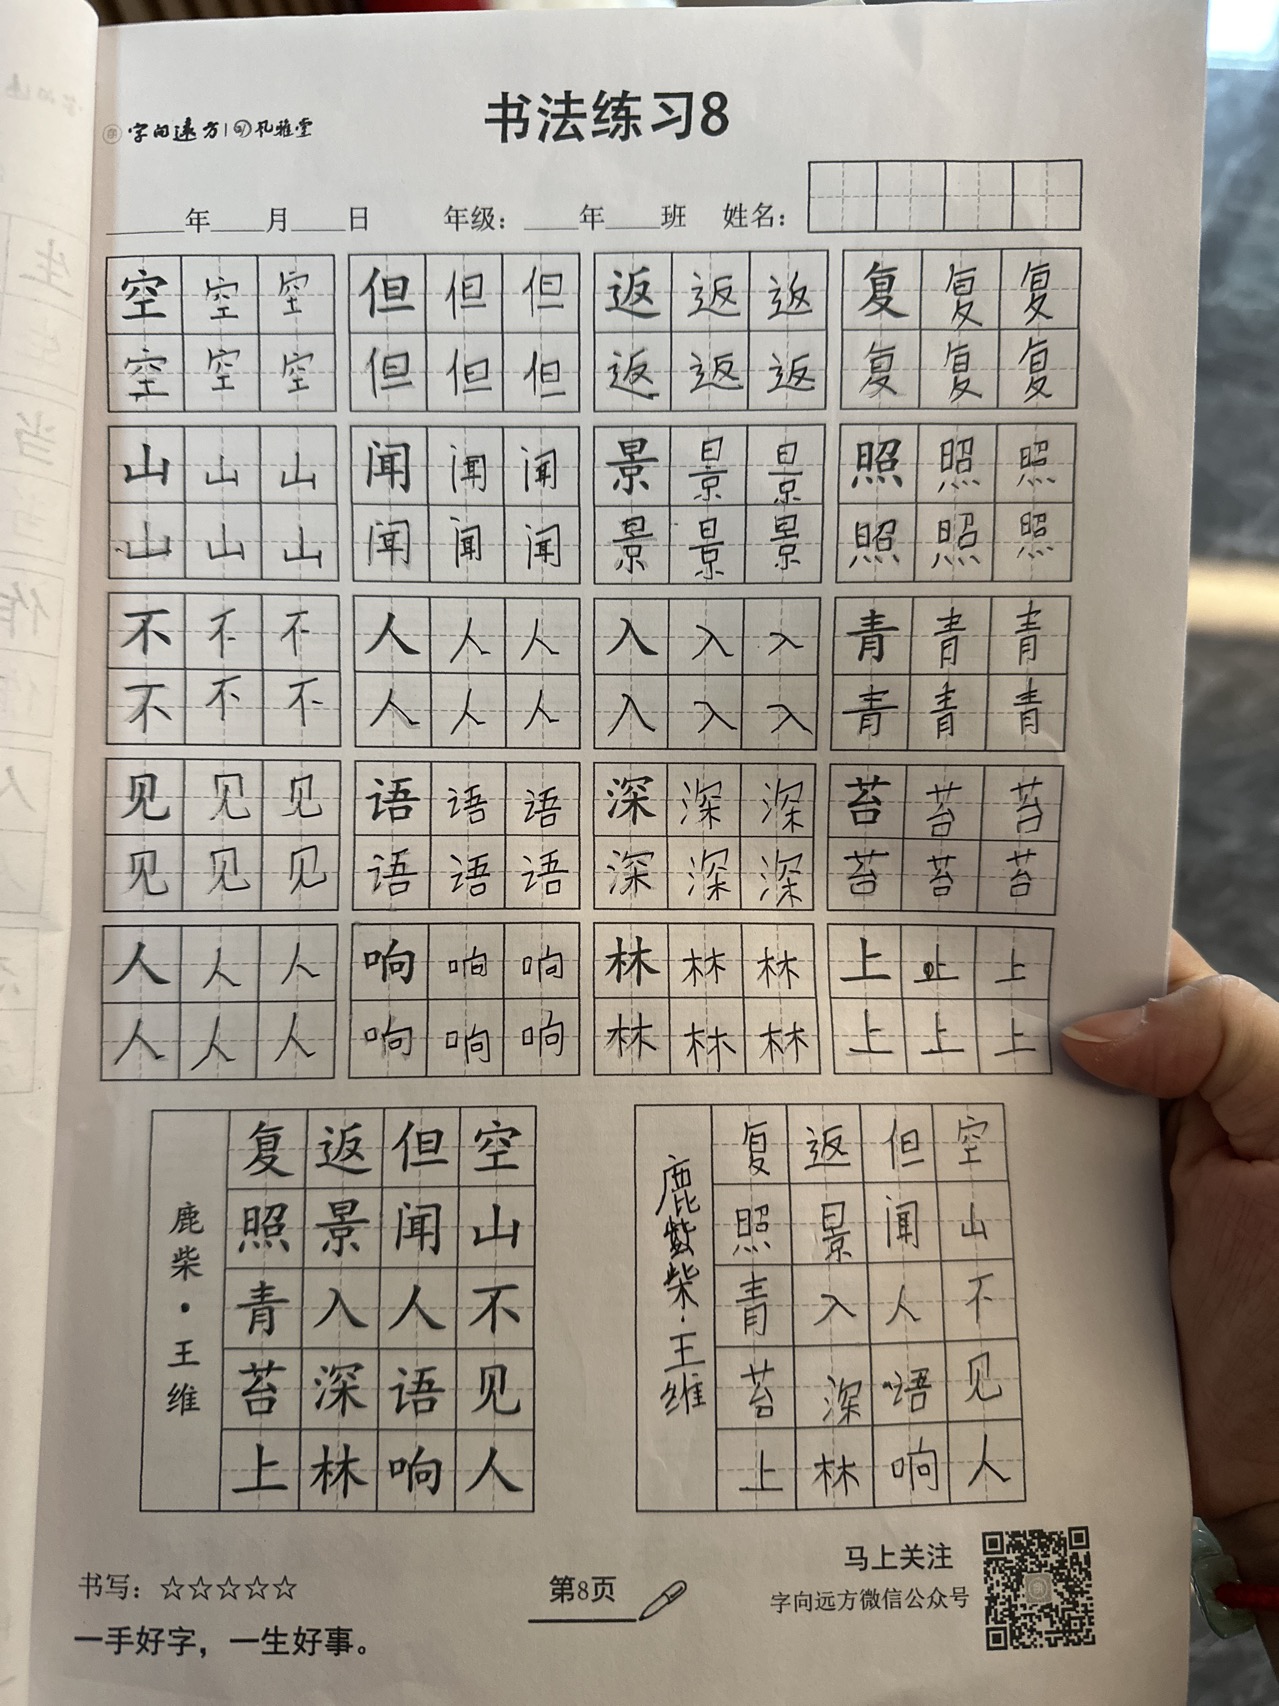 书法练习8
字向远方 孔雅堂
____年____月____日 年级：____年____班 姓名：
空空空 但但但 返返返 复复复
空空空 但但但 返返返 复复复
山山山 闻闻闻 景景景 照照照
山山山 闻闻闻 景景景 照照照
不不不 人人人 入入入 青青青
不不不 人人人 入入入 青青青
见见见 语语语 深深深 苔苔苔
见见见 语语语 深深深 苔苔苔
人人人 响响响 林林林 上上上
人人人 响响响 林林林 上上上
空山不见人
但闻人语响
返景入深林
复照青苔上
鹿柴·王维
空山不见人
但闻人语响
返景入深林
复照青苔上
鹿柴·王维
书写：☆☆☆☆☆
一手好字，一生好事。
第8页
马上关注
字向远方微信公众号